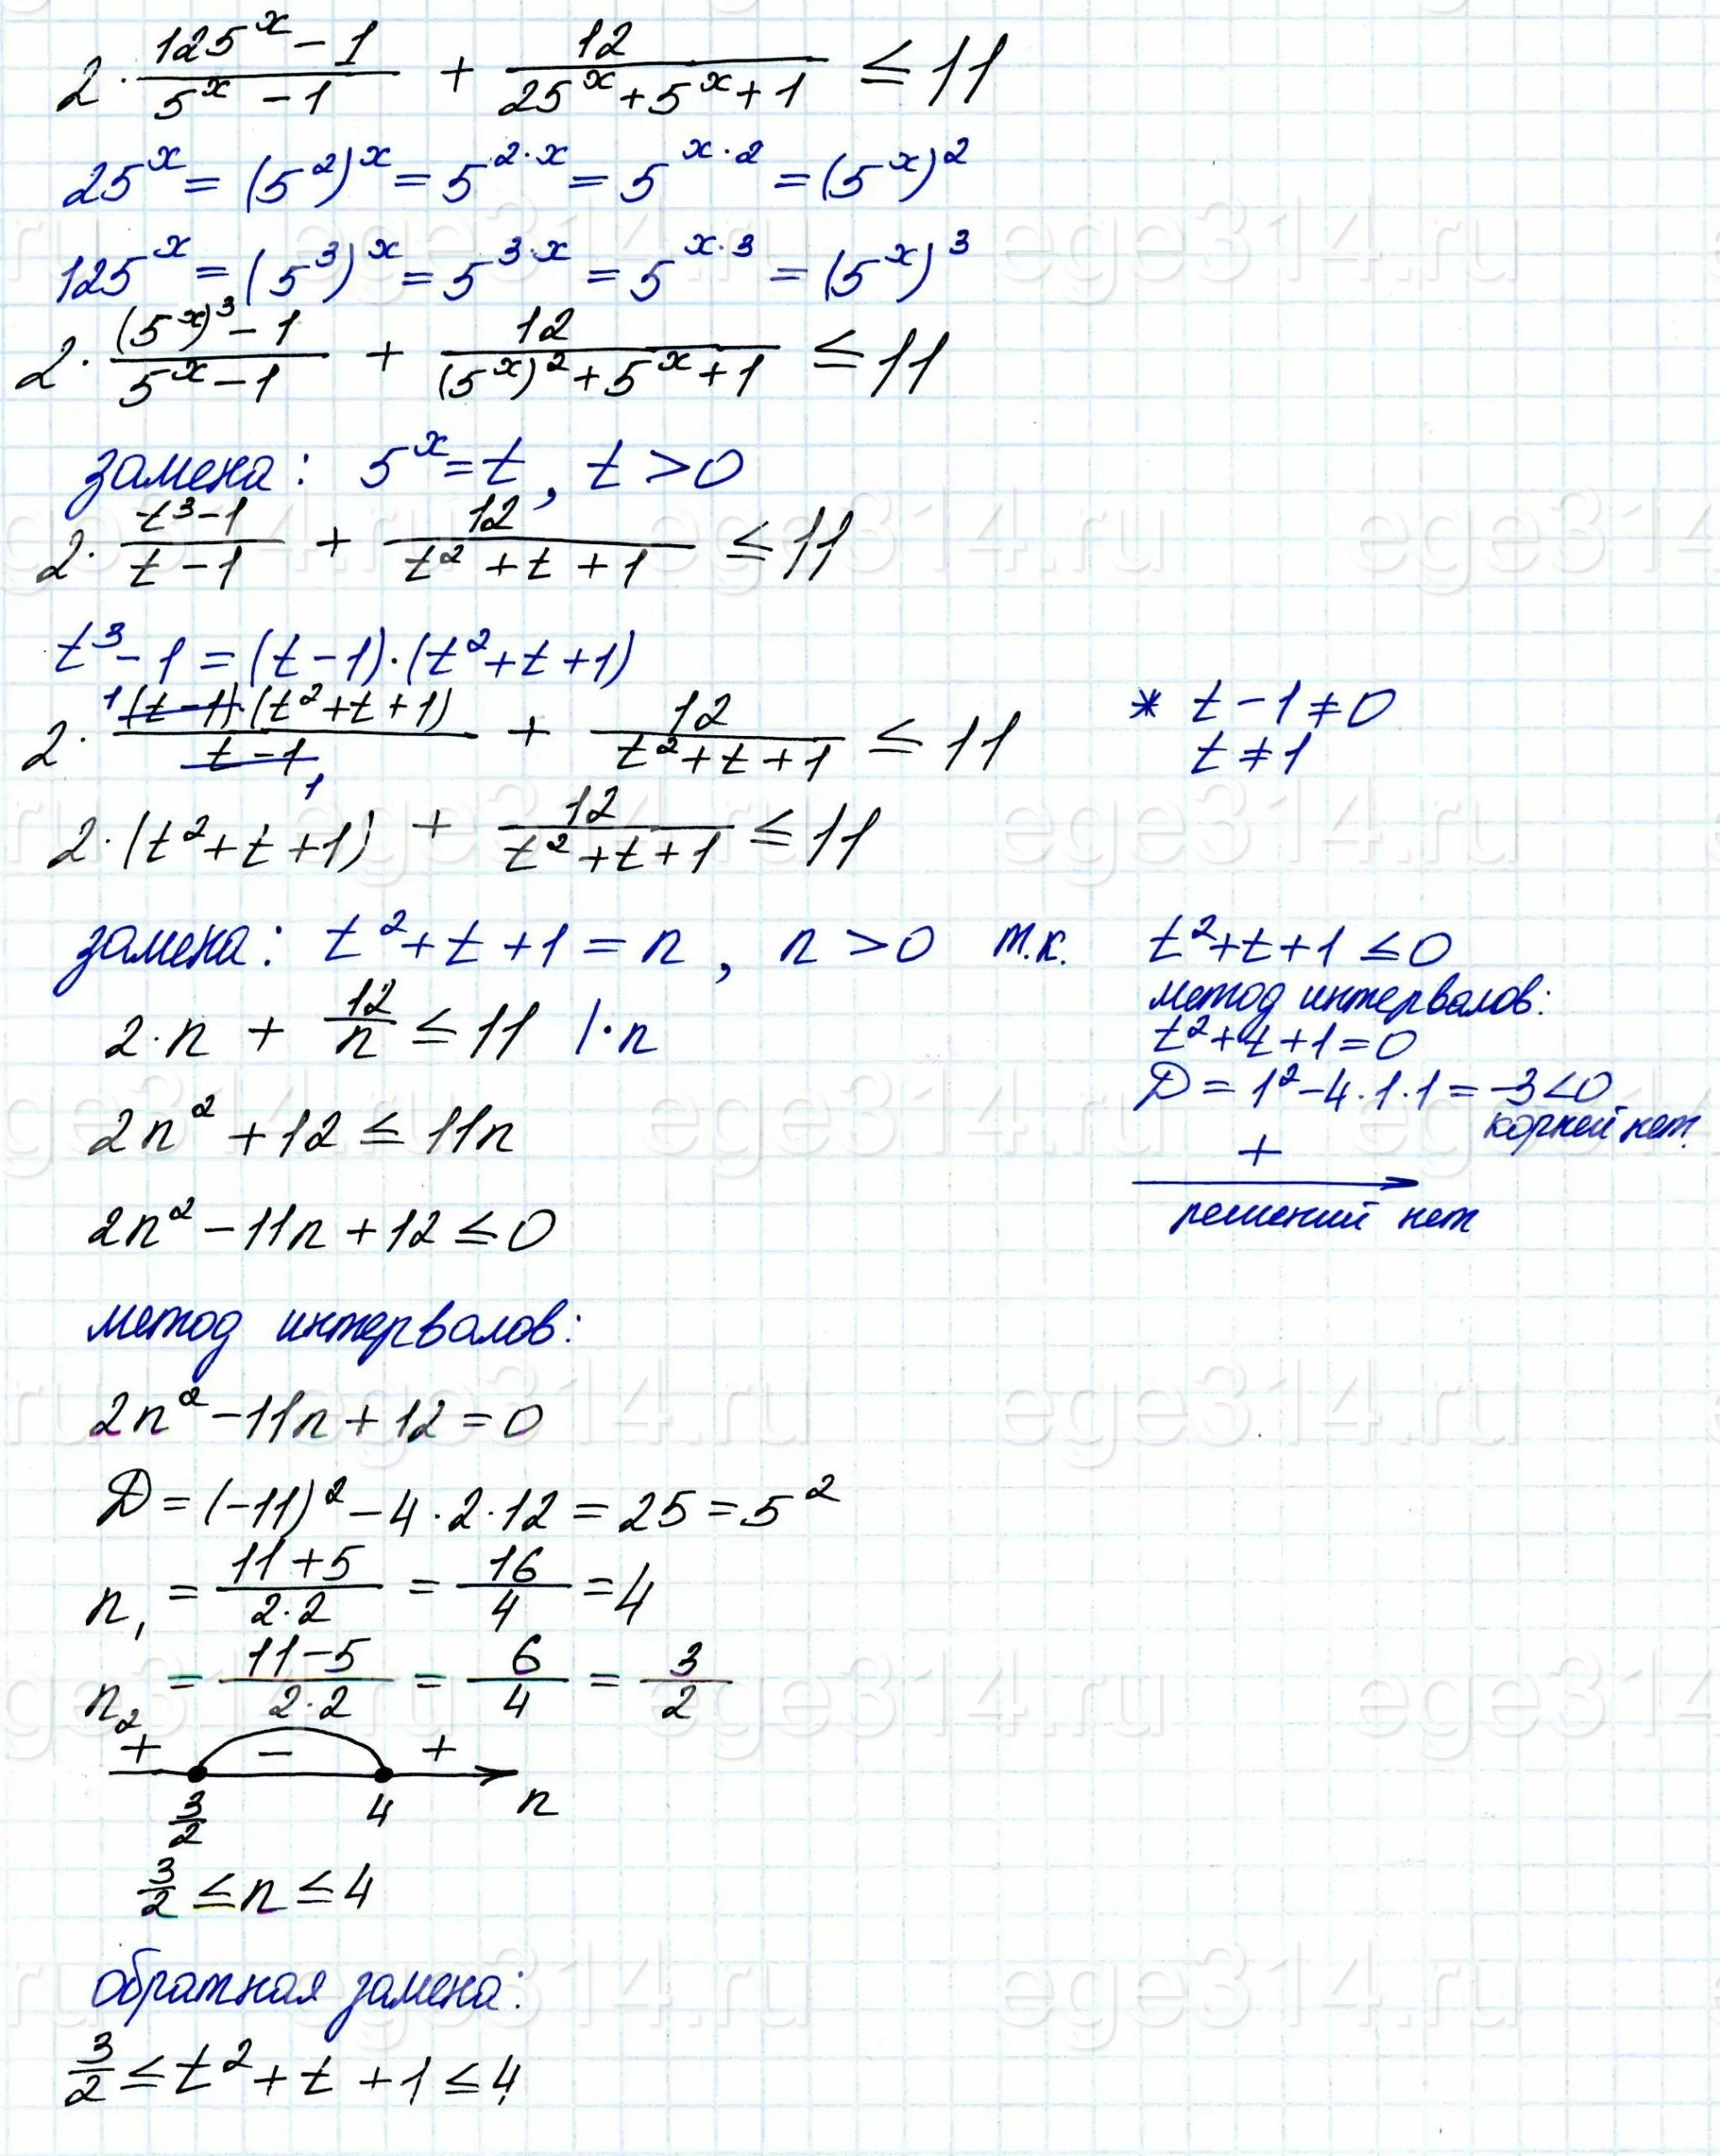 2 · (125^x − 1)/(5^x − 1) + 12/(25^x + 5^x + 1) ≤ 11
25^x = (5^2)^x = 5^(2·x) = 5^(x·2) = (5^x)^2
125^x = (5^3)^x = 5^(3·x) = 5^(x·3) = (5^x)^3
2 · ((5^x)^3 − 1)/(5^x − 1) + 12/((5^x)^2 + 5^x + 1) ≤ 11
замена: 5^x = t, t > 0
2 · (t^3 − 1)/(t − 1) + 12/(t^2 + t + 1) ≤ 11
t^3 − 1 = (t − 1) · (t^2 + t + 1)
2 · 1 (t − 1) · (t^2 + t + 1)/(t − 1) 1 + 12/(t^2 + t + 1) ≤ 11
* t − 1 ≠ 0
t ≠ 1
2 · (t^2 + t + 1) + 12/(t^2 + t + 1) ≤ 11
замена: t^2 + t + 1 = n, n > 0 т.к.
t^2 + t + 1 ≤ 0
метод интервалов:
t^2 + t + 1 = 0
D = 1^2 − 4 · 1 · 1 = −3 < 0
корней нет.
+
решений нет
2 · n + 12/n ≤ 11 | · n
2n^2 + 12 ≤ 11n
2n^2 − 11n + 12 ≤ 0
метод интервалов:
2n^2 − 11n + 12 = 0
D = (−11)^2 − 4 · 2 · 12 = 25 = 5^2
n₁ = (11 + 5)/(2 · 2) = 16/4 = 4
n₂ = (11 − 5)/(2 · 2) = 6/4 = 3/2
+ − +
3/2 4 n
3/2 ≤ n ≤ 4
обратная замена:
3/2 ≤ t^2 + t + 1 ≤ 4
ege314.ru